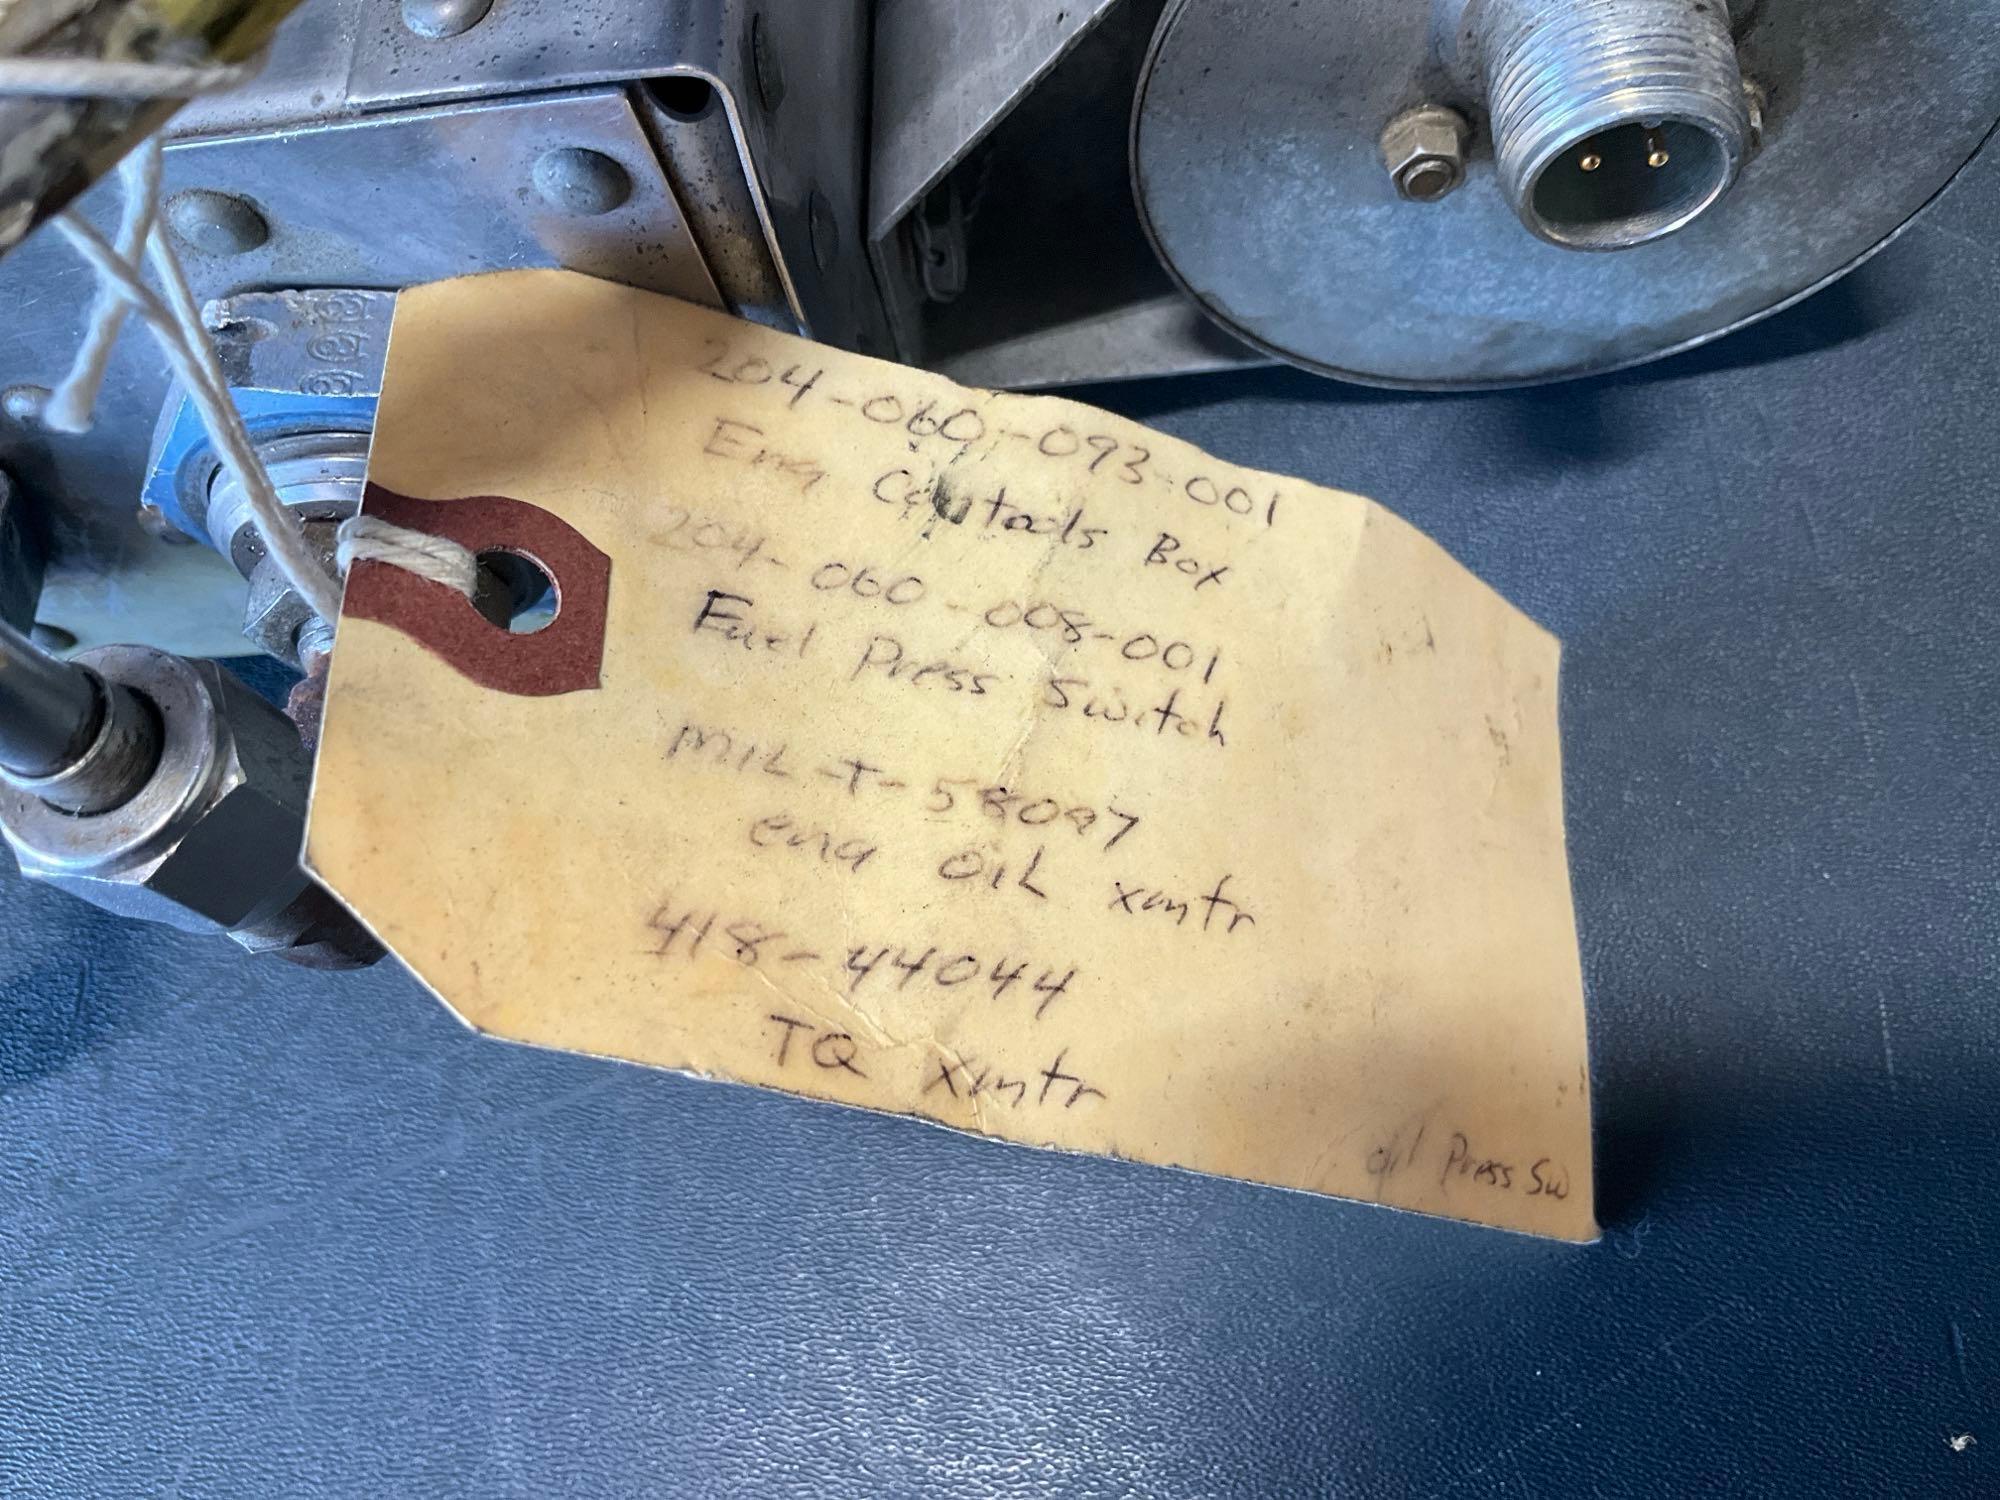 204-060-093-001
Eng Controls Box
204-060-008-001
Fuel Press Switch
MIL-T-58097
eng OIL xmtr
418-44044
TQ xmtr
oil Press Sw